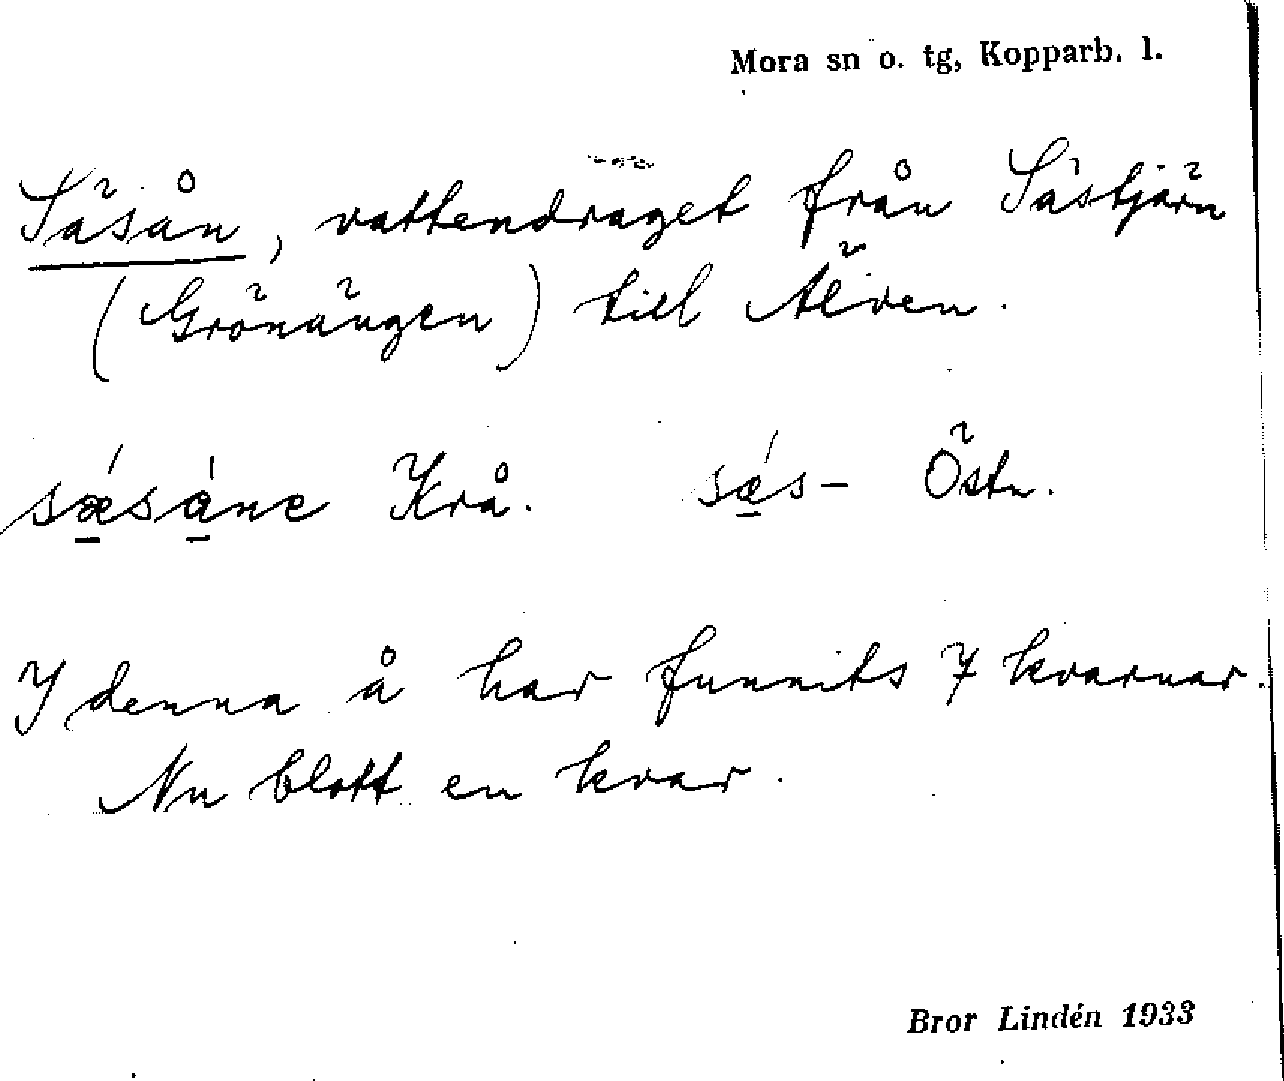 Mora sn o. tg, Kopparb. l.
Säsån, vattendraget från Sästjärn
(Grönängen) till Älven.
sǽsáne Krå. sǽs- Östn.
I denna å har funnits 7 kvarnar.
Nu blott en kvar.
Bror Lindén 1933